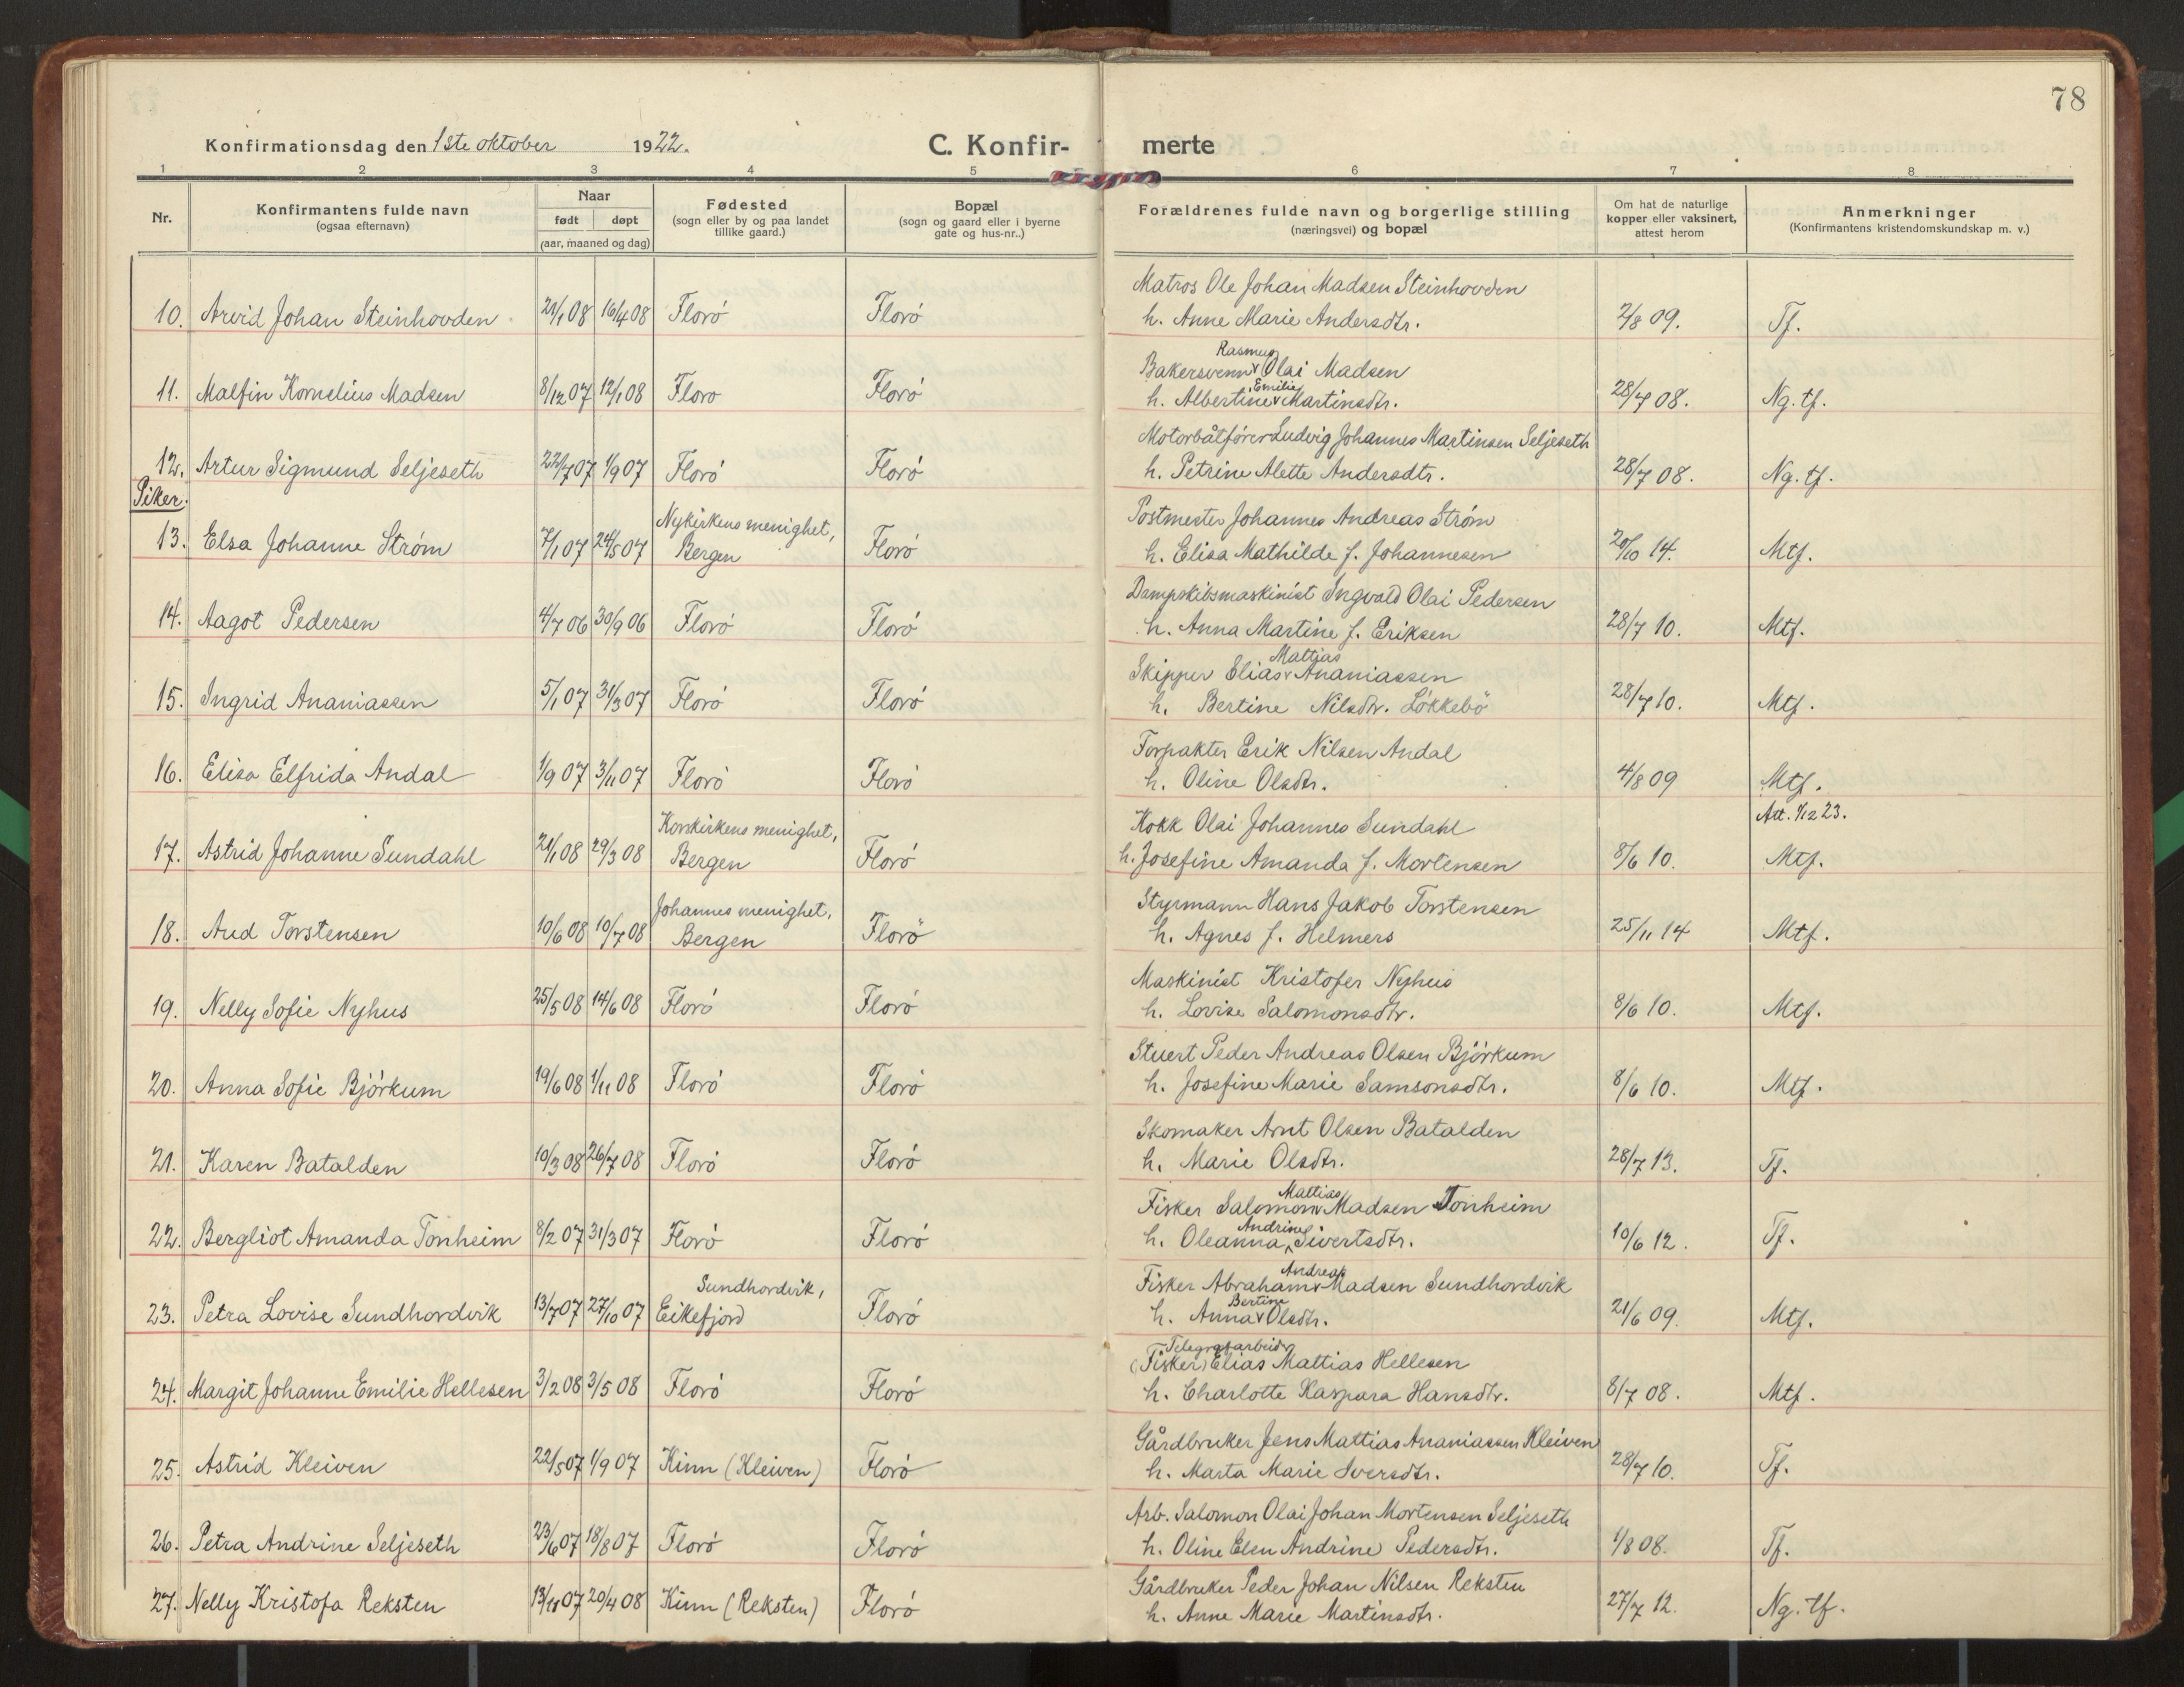 78
Konfirmationsdag den 1ste oktober 1922. C. Konfir- merte
1 2 3 4 5 6 7 8
Nr. Konfirmantens fulde navn (ogsaa efternavn) Naar født døpt (aar, maaned og dag) Fødested (sogn eller by og paa landet tillike gaard.) Bopæl (sogn og gaard eller i byerne gate og hus-nr..) Forældrenes fulde navn og borgerlige stilling (næringsvei) og bopæl Om hat de naturlige kopper eller vaksinert, attest herom Anmerkninger (Konfirmantens kristendomskundskap m. v.)
Matros Ole Johan Madsen Steinhovden
10. Arvid Johan Steinhovden 21/1 08 16/4 08 Florö Florö h. Anne Marie Andersdtr. 2/8 09. Tf.
Bakersvenn Rasmus Olai Madsen
11. Malfin Kornelius Madsen 8/12 07 12/1 08 Floro Florö h. Albertine Emilie Martinsdtr. 28/7 08. Ng. tf.
Motorbåtfører Ludvig Johannes Martinsen Seljeseth
12. Artur Sigmund Seljeseth 22/7 07 1/9 07 Florö Florö h. Petrine Alette Andersdtr. 28/7 08. Ng. tf.
Piker.
Nykirkens menighet, Postmester Johannes Andreas Strøm
13. Elsa Johanne Strøm 7/1 07 24/5 07 Bergen Florö h. Elisa Mathilde f. Johannesen 20/10 14. Mtf.
Dampskibsmaskinist Ingvald Olai Pedersen
14. Aagot Pedersen 4/7 06 30/9 06 Florö Florö h. Anna Martine f. Eriksen 28/7 10. Mtf.
Skipper Elias Mattias Ananiassen
15. Ingrid Ananiassen 5/1 07 31/3 07 Florö Florö h. Bertine Nilsdtr. Lökkebö 28/7 10. Mtf.
Forpakter Erik Nilsen Andal
16. Elisa Elfrida Andal 1/9 07 3/11 07 Florö Florö h. Oline Olsdtr. 4/8 09 Mtf.
Korskirkens menighet, Kokk Olai Johannes Sundahl Att. 1/12 23.
17. Astrid Johanne Sundahl 21/1 08 29/3 08 Bergen Florö h. Josefine Amanda f. Mortensen 8/6 10. Mtf.
Johannes menighet, Styrmann Hans Jakob Torstensen
18. Aud Torstensen 10/6 08 10/7 08 Bergen Florö h. Agnes f. Helmers 25/11 14 Mtf.
Maskinist Kristofer Nyhus
19. Nelly Sofie Nyhus 25/5 08 14/6 08 Florö Florö h. Lovise Salomonsdtr. 8/6 10. Mtf.
Stuert Peder Andreas Olsen Björkum
20. Anna Sofie Björkum 19/6 08 1/11 08 Florö Florö h. Josefine Marie Samsonsdtr. 8/6 10. Mtf.
Skomaker Arnt Olsen Batalden
21. Karen Batalden 10/3 08 26/7 08 Florö Florö h. Marie Olsdtr. 28/7 13. Tf.
Fisker Salomon Mattias Madsen Tonheim
22. Bergliot Amanda Tonheim 8/2 07 31/3 07 Florö Florö h. Oleanna Andrine Sivertsdtr. 10/6 12. Tf.
Sundhordvik, Fisker Abraham Andreas Madsen Sundhordvik
23. Petra Lovise Sundhordvik 13/7 07 27/10 07 Eikefjord Florö h. Anna Bertine Olsdtr. 21/6 09. Mtf.
Telegrafarbeider (Fisker) Elias Mattias Hellesen
24. Margit Johanne Emilie Hellesen 3/2 08 3/5 08 Florö Florö h. Charlotte Kaspara Hansdtr. 8/7 08. Mtf.
Gårdbruker Jens Mattias Ananiassen Kleiven
25. Astrid Kleiven 22/5 07 1/9 07 Kinn (Kleiven) Florö h. Marta Marie Iversdtr. 28/7 10. Tf.
Arb. Salomon Olai Johan Mortensen Seljeseth
26. Petra Andrine Seljeseth 23/6 07 18/8 07 Florö Florö h. Oline Elen Andrine Pedersdtr. 1/8 08. Tf.
Gårdbruker Peder Johan Nilsen Reksten
27. Nelly Kristofa Reksten 13/11 07 20/4 08 Kinn (Reksten) Florö h. Anne Marie Martinsdtr. 27/7 12. Ng. tf.